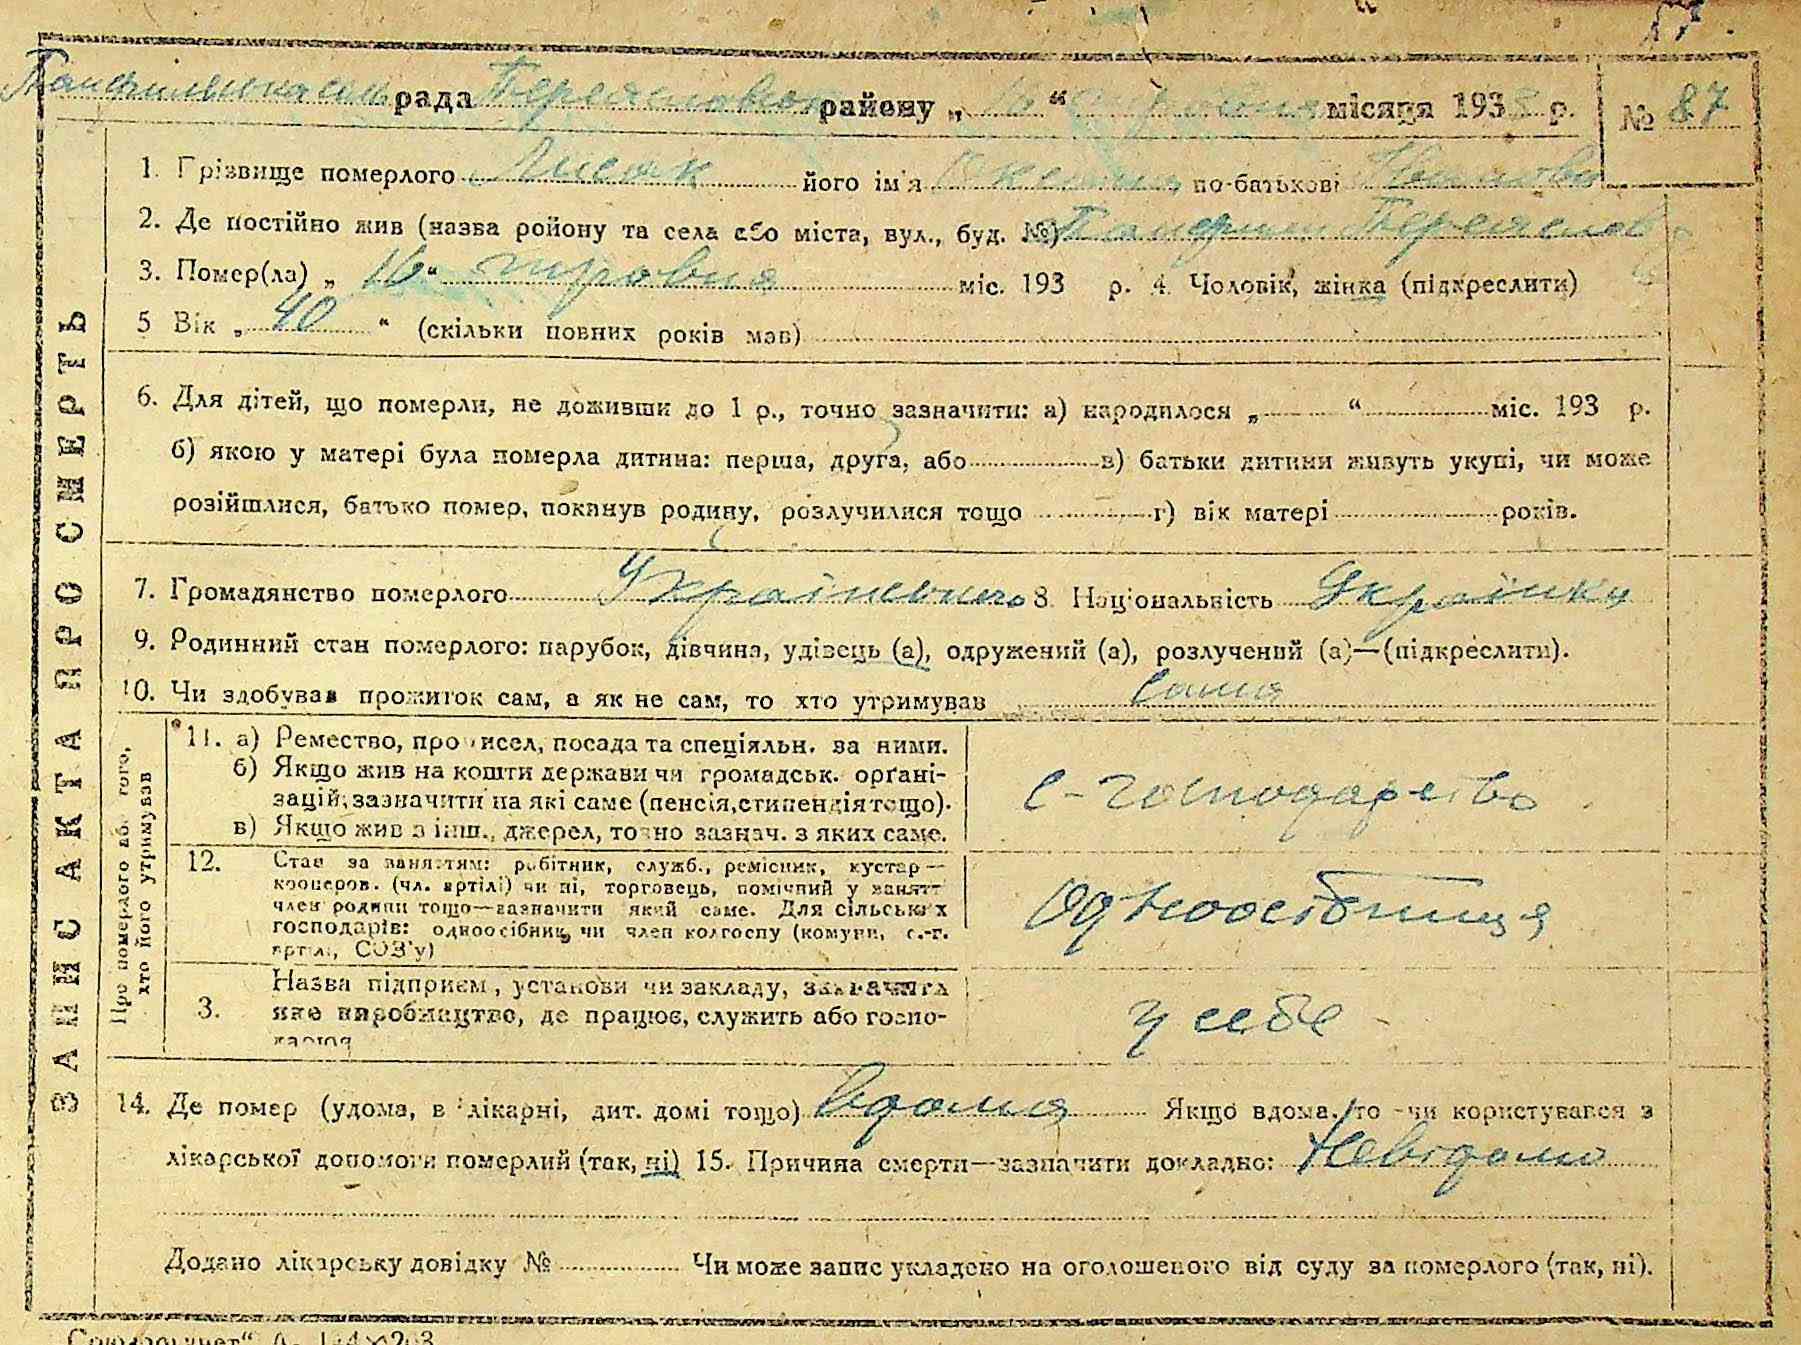 рада Переяславськ району „ 16 “ травня місяця 1933 р. № 87
1. Прізвище померлого Лисак його ім'я Оксана по-батькові Іванова
2. Де постійно жив (назва ройону та села або міста, вул., буд. №) Панфили Переяслав
3. Помер(ла) „ 16 “ травня міс. 193 р. 4. Чоловік, жінка (підкреслити)
5 Вік „ 40 “ (скільки повних років мав)
6. Для дітей, що померли, не доживши до 1 р., точно зазначити: а) народилося „ “ міс. 193 р.
б) якою у матері була померла дитина: перша, друга, або в) батьки дитини живуть укупі, чи може
розійшлися, батько помер, покинув родину, розлучилися тощо г) вік матері років.
7. Громадянство померлого Українського 8. Національність Українка
9. Родинний стан померлого: парубок, дівчина, удівець (а), одружений (а), розлучений (а)—(підкреслити).
10. Чи здобував прожиток сам, а як не сам, то хто утримував сама
ЗАПИС АКТА ПРО СМЕРТЬ
Про померлого або того,
хто його утримував
11. а) Ремество, промисел, посада та спеціяльн. за ними.
б) Якщо жив на кошти держави чи громадськ. орґані-
зацій, зазначити на які саме (пенсія, стипендія тощо).
в) Якщо жив з інш., джерел, точно зазнач. з яких саме.
с-господарство
12. Стан за заняттям: робітник, служб., ремісник, кустар—
кооперов. (чл. артілі) чи ні, торговець, помічний у занятт
член родини тощо—зазначити який саме. Для сільських
господарів: одноосібник, чи член колгоспу (комуни, с.-г.
артілі, СОЗ'у)
Одноосібниця
3. Назва підприєм, установи чи закладу, зазначити
яке виробництво, де працює, служить або госпо-
дарює
у себе
14. Де помер (удома, в лікарні, дит. домі тощо) вдома Якщо вдома, то чи користувався з
лікарської допомоги померлий (так, ні) 15. Причина смерти—зазначити докладно: Невідомо
Додано лікарську довідку № Чи може запис укладено на оголошеного від суду за померлого (так, ні).